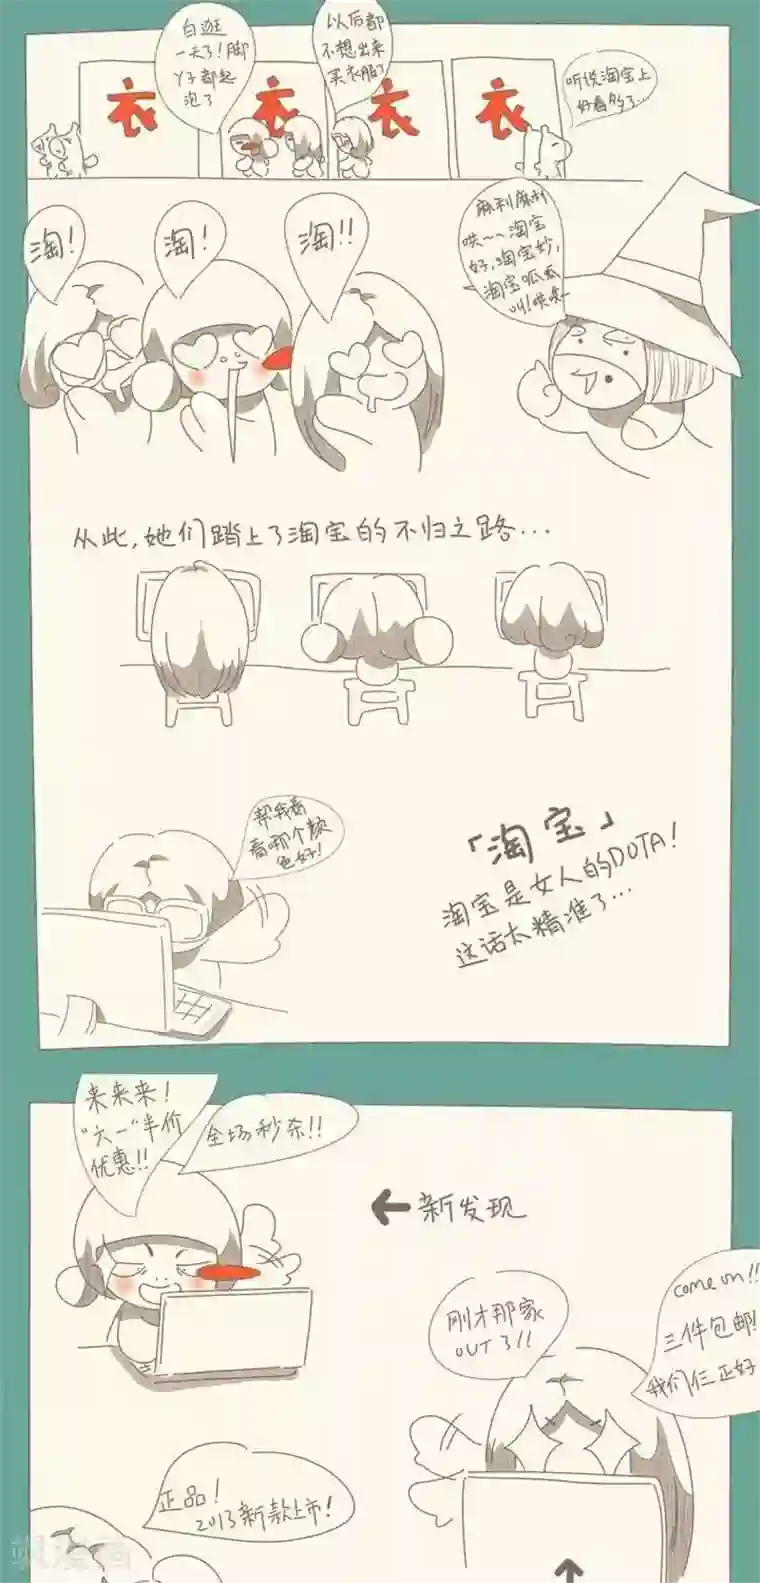 白逛
一天了！脚
丫子都起
泡了
以后都
不想出来
买衣服了
听说淘宝上
好看多了...
衣
衣
衣
衣
淘！
淘！
淘！！
麻利麻利
哄~~淘宝
好,淘宝妙,
淘宝呱呱
叫！哄哄~
从此,她们踏上了淘宝的不归之路...
帮我看
看哪个颜
色好！
「淘宝」
淘宝是女人的DOTA！
这话太精准了...
来来来！
"六一"半价
优惠！！
全场秒杀！！
←新发现
刚才那家
OUT了！！
come on！！
三件包邮！
我们仨正好
正品！
2013新款上市！
↑
飒漫画